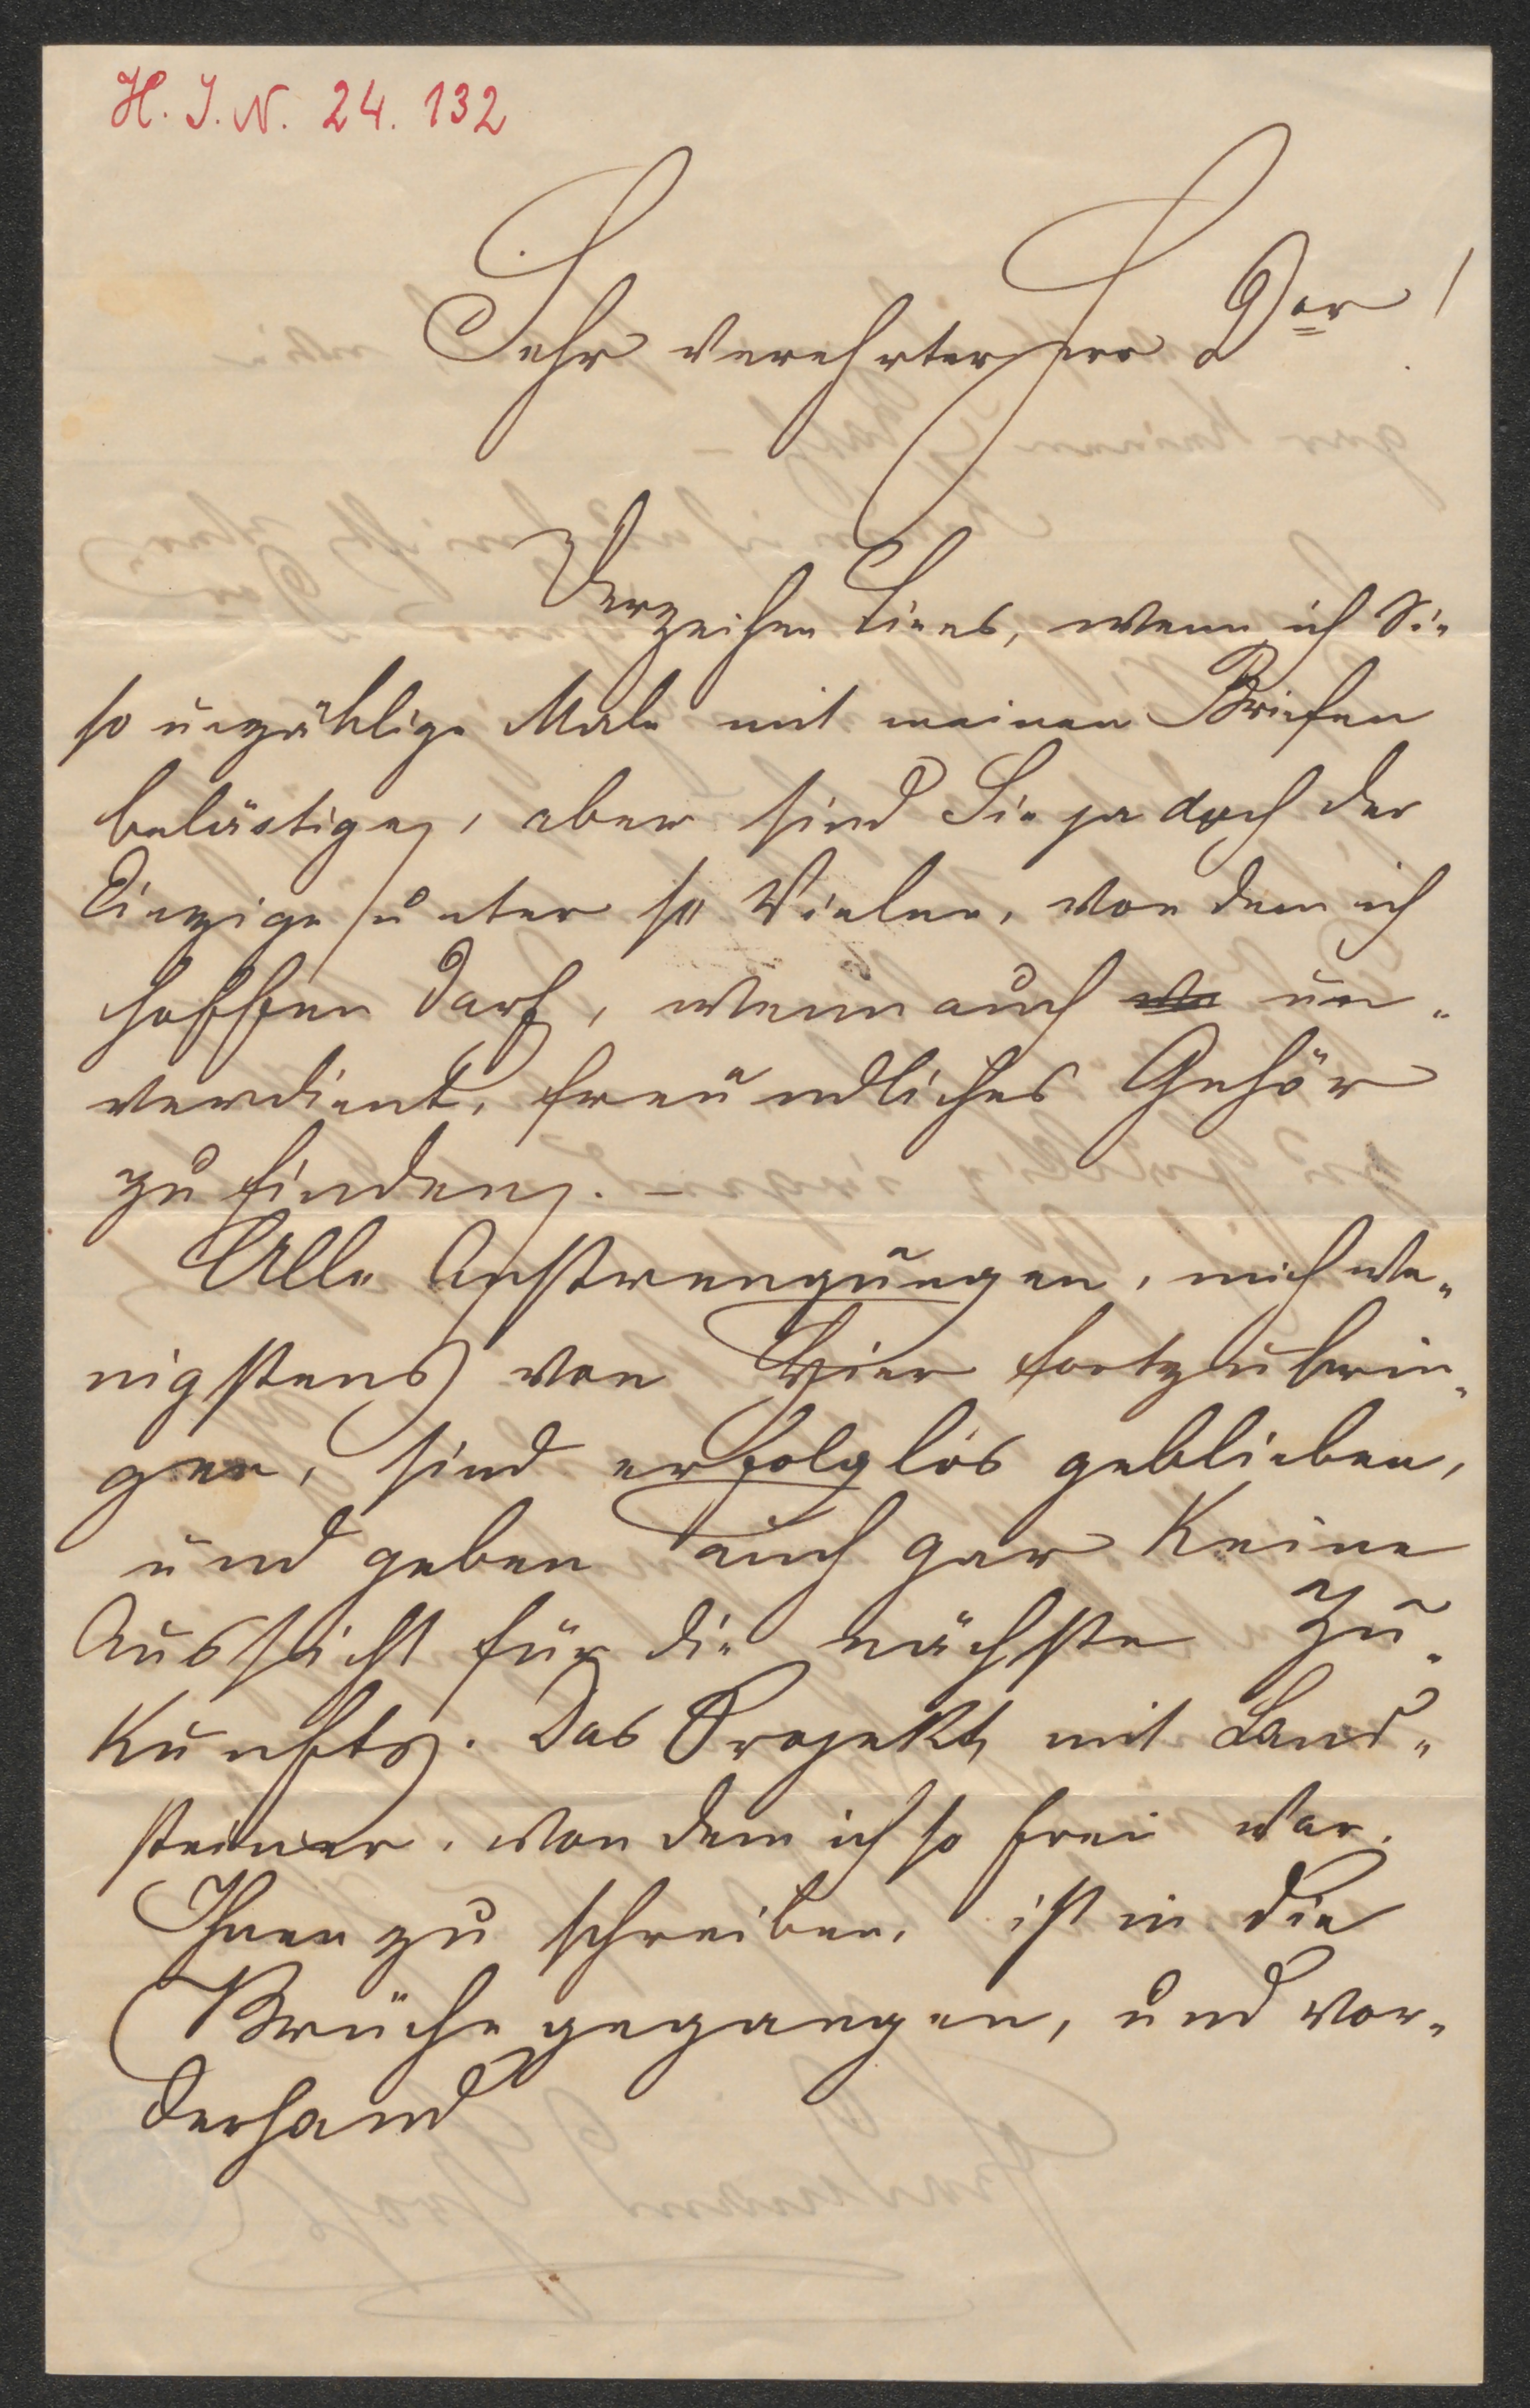 H. I. N. 24.132
Sehr verehrter Herr Dor!
Verzeihen Sie es, wenn ich Sie
so unzählige Male mit meinen Briefen
belästige, aber sind Sie ja doch der
Einzige unter so Vielen, von dem ich
hoffen darf, wenn auch un„
verdient, freundliches Gehör
zu finden. –
Alle Anstrengungen, mich we„
nigstens von hier fortzubrin„
gen, sind erfolglos geblieben,
und geben auch gar keine
Aussicht für die nächste Zu„
kunft. Das Projekt mit Land„
steiner, von dem ich so frei war,
Ihnen zu schreiben, ist in die
Brüche gegangen, und vor„
derhand